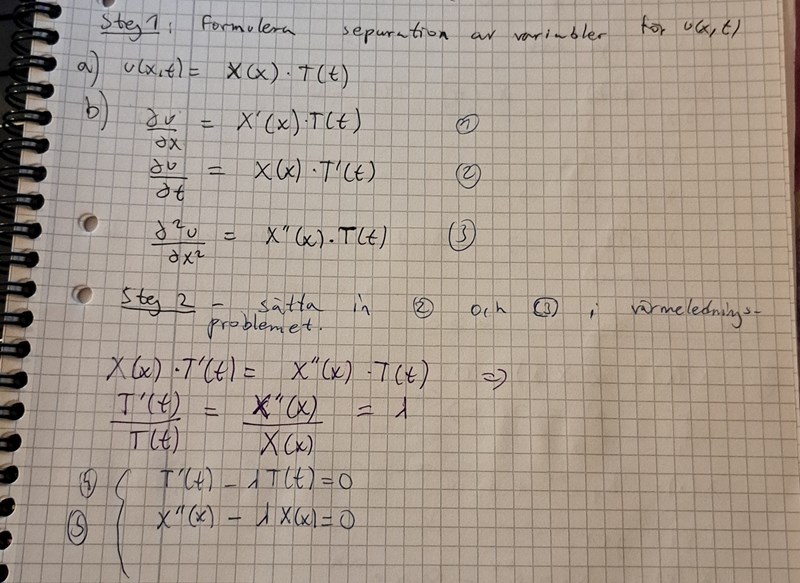 Steg 1: Formulera separation av variabler för u(x,t)
a) u(x,t) = X(x) · T(t)
b) ∂u/∂x = X'(x) · T(t) ①
∂u/∂t = X(x) · T'(t) ②
∂²u/∂x² = X''(x) · T(t) ③
Steg 2 – sätta in ② och ③ i värmelednings-
problemet.
X(x) · T'(t) = X''(x) · T(t) ⇒
T'(t)/T(t) = X''(x)/X(x) = λ
④ { T'(t) – λT(t) = 0
⑤ X''(x) – λX(x) = 0